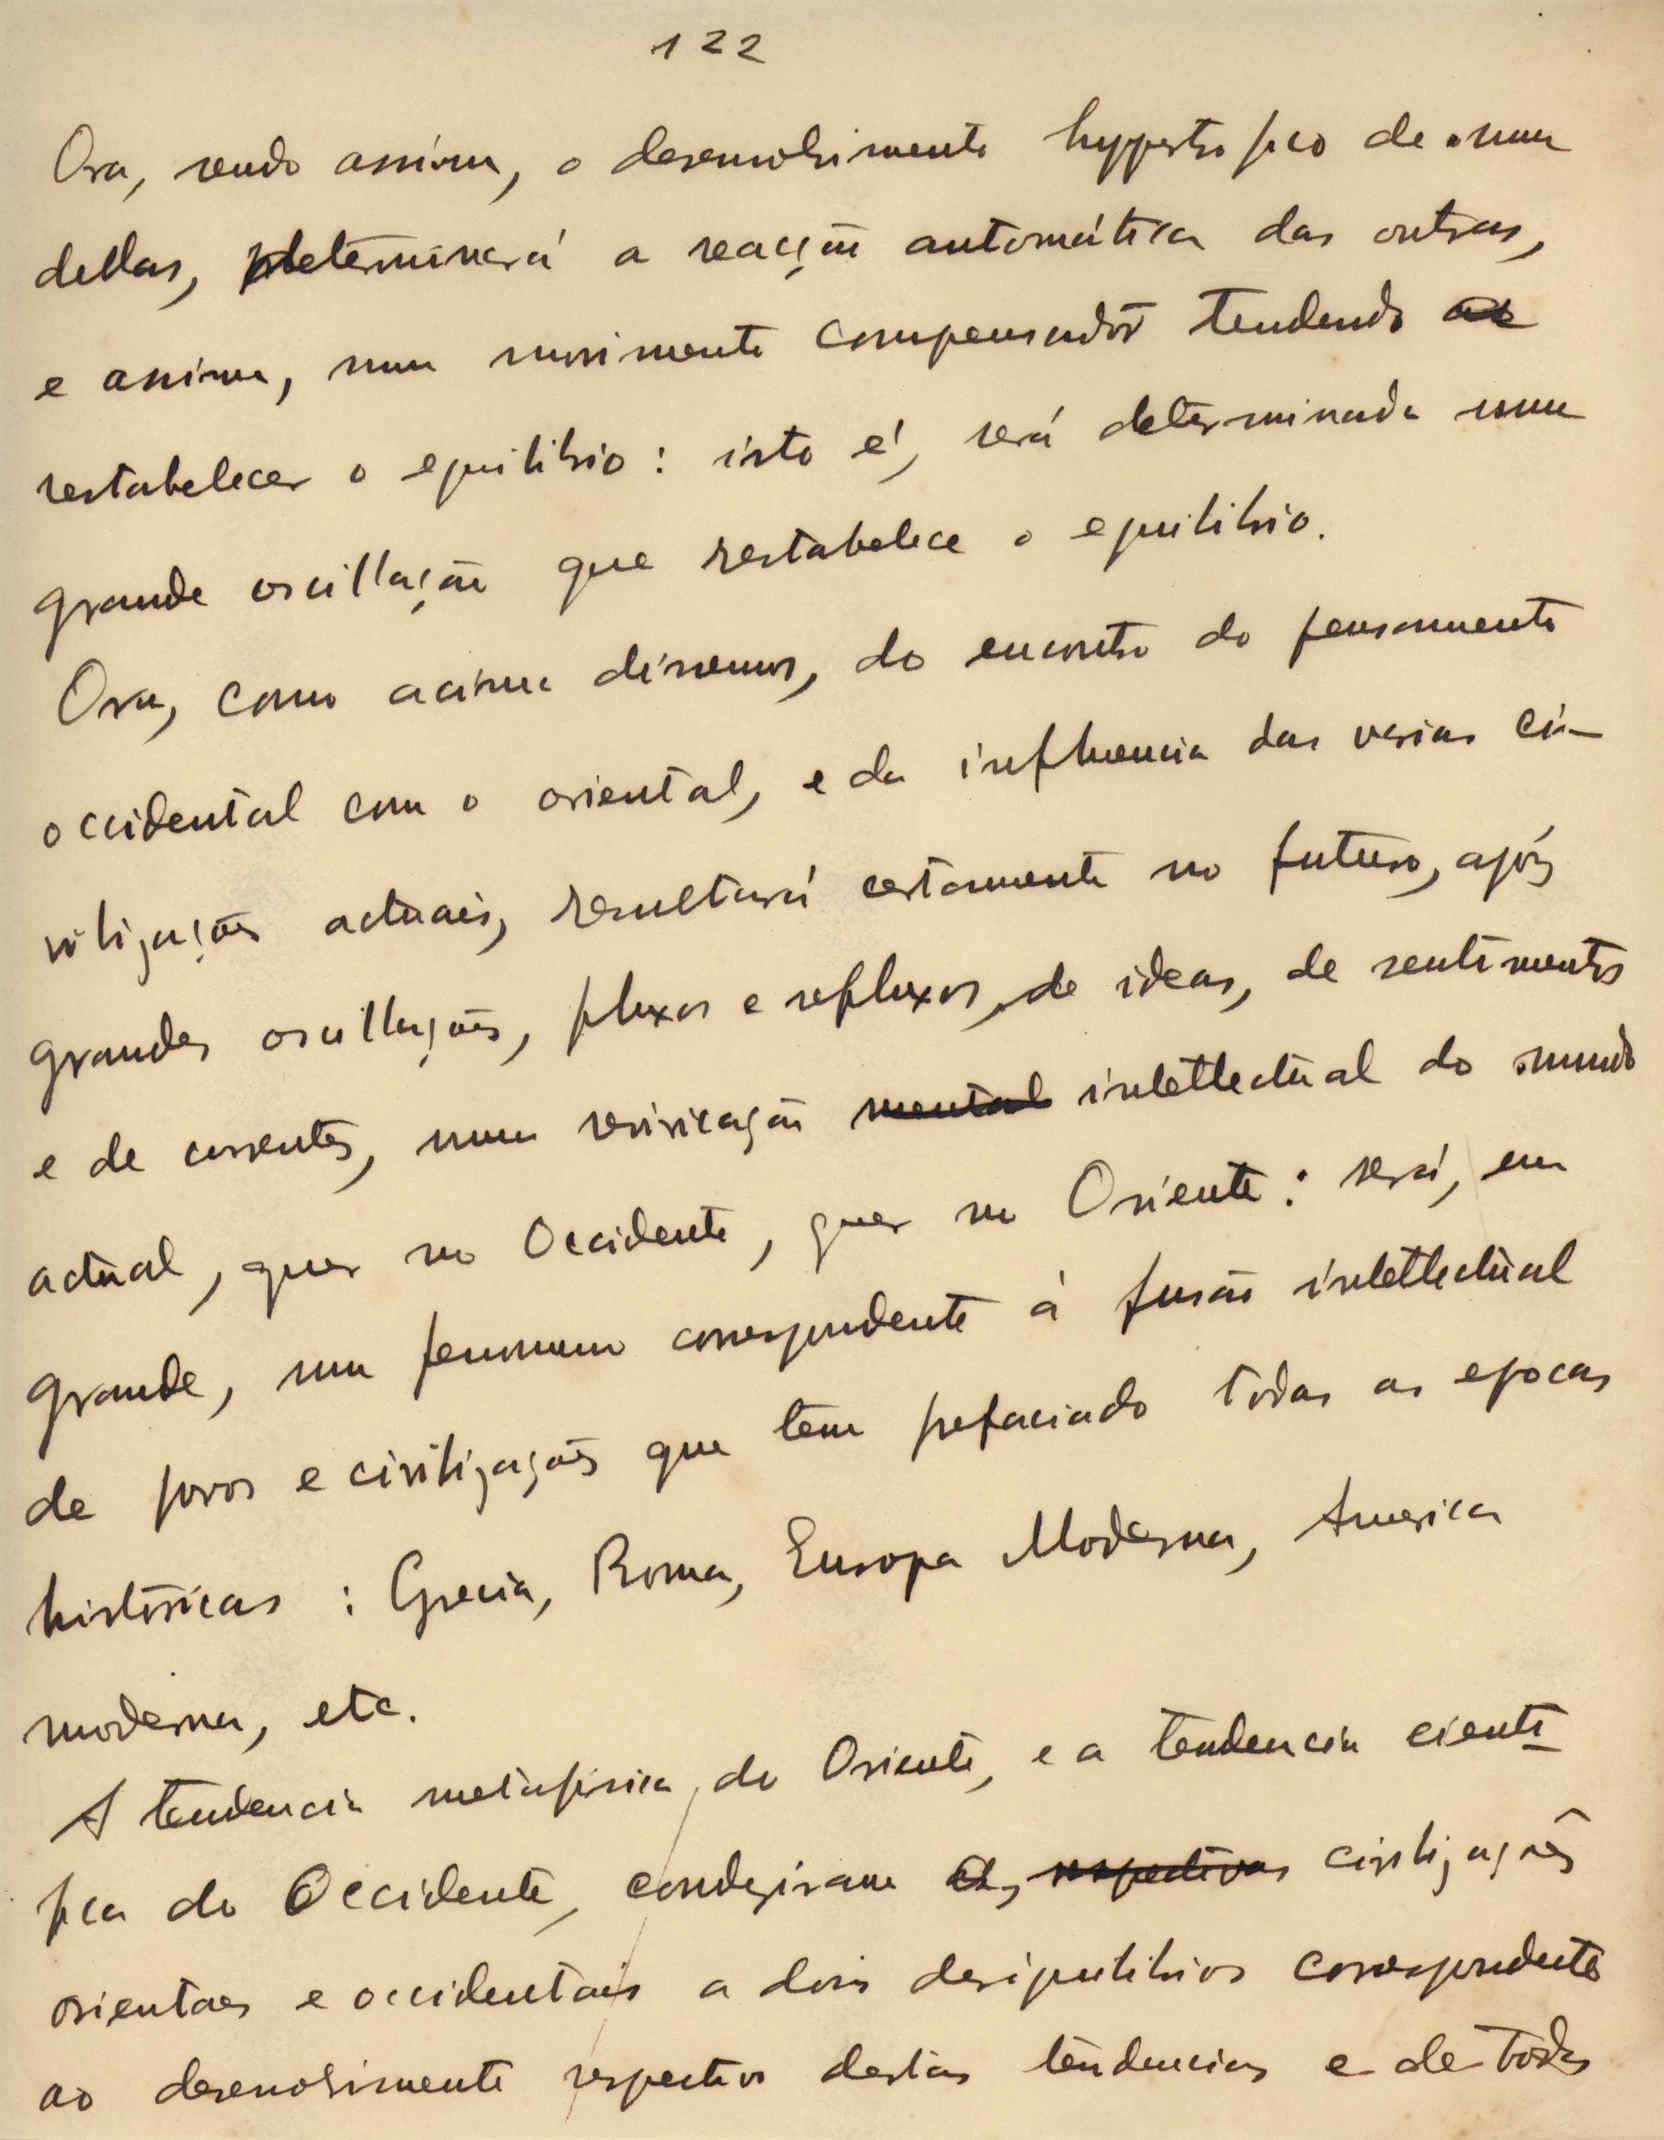 122
Ora, sendo assim, o desenvolvimento hypertrofico de uma
dellas, determinará a reacção automática das outras,
e assim, num movimento compensador tendendo a
restabelecer o equilibrio: isto é, será determinada uma
grande oscillação que restabelece o equilibrio.
Ora, como acima dissemos, do encontro do pensamento
occidental com o oriental, e da influencia das varias ci-
vilizações actuais, resultará certamente no futuro, após
grandes oscillações, fluxos e refluxos, de ideas, de sentimentos
e de correntes, numa revivicação mental intellectual do mundo
actual, quer no Occidente, quer no Oriente: será, em
grande, um fenomeno correspondente á fusão intellectual
de povos e civilizações que tem prefaciado todas as epocas
históricas: Grecia, Roma, Europa Moderna, America
moderna, etc.
A tendencia metafisica, do Oriente, e a tendencia cienti-
fica do Occidente, conduziram as respectivas civilizações
orientaes e occidentais a dois desiquilibrios correspondentes
ao desenvolvimento respectivo destas tendencias e de todas